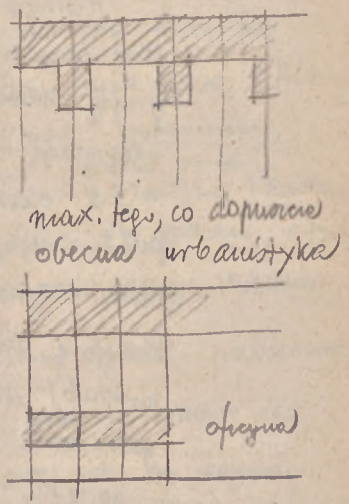 max. tego, co dopuszcza
obecna urbanistyka
oficyna